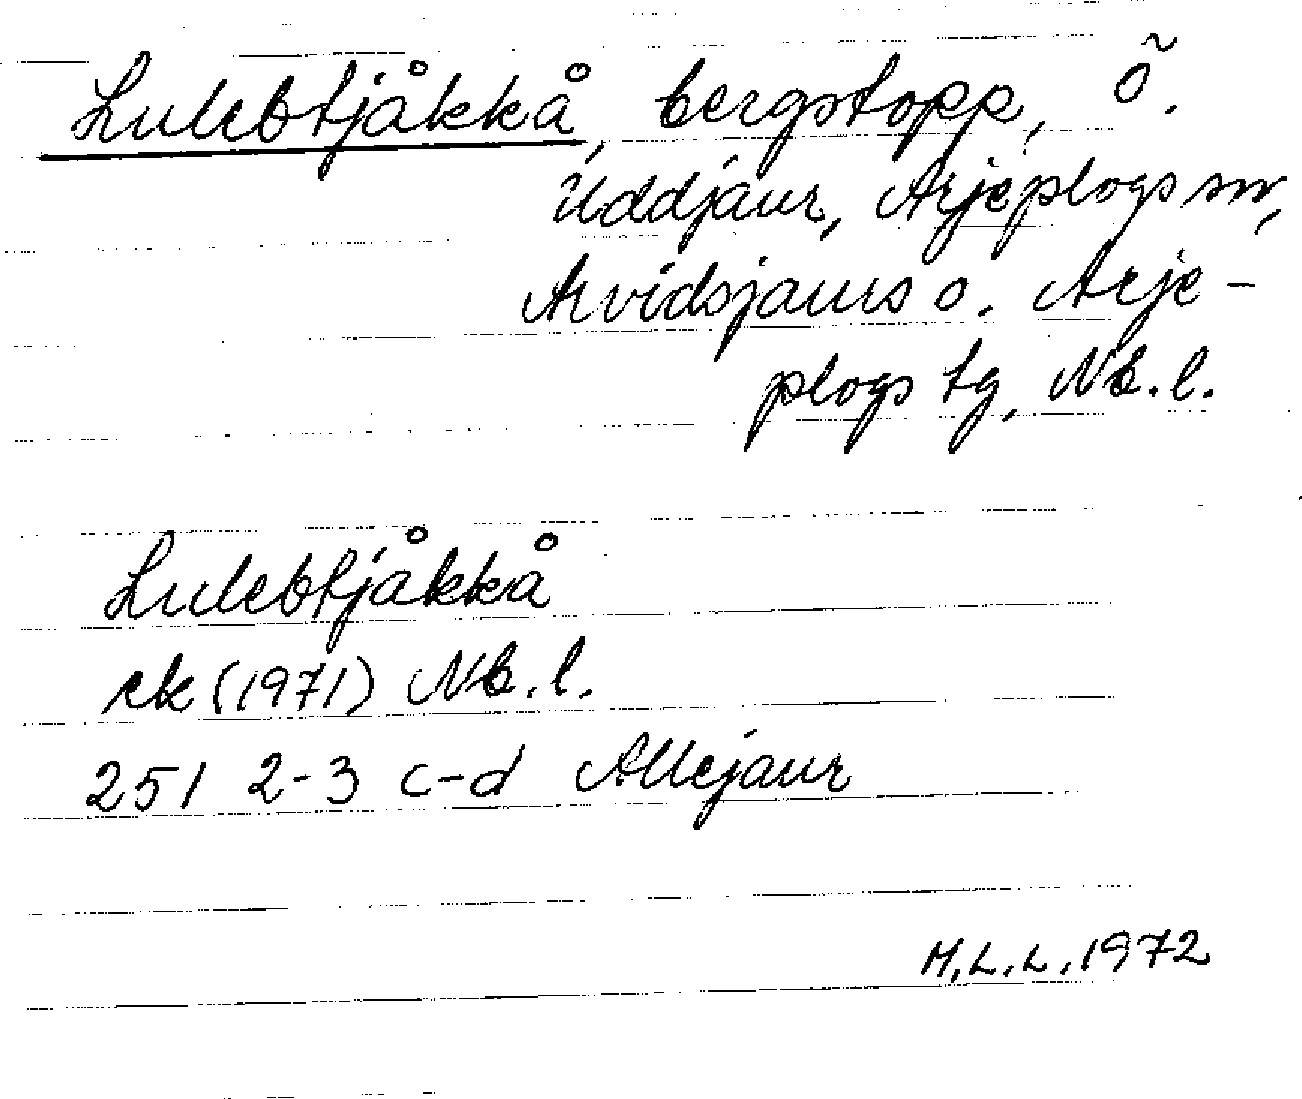 Lulebtjåkkå, bergstopp, ö.
Uddjaur, Arjeplogs sn,
Arvidsjaurs o. Arje-
plogs tg, Nb.l.
Lulebtjåkkå
ek (1971) Nb.l.
251 2-3 c-d Allejaur
M.L.L. 1972